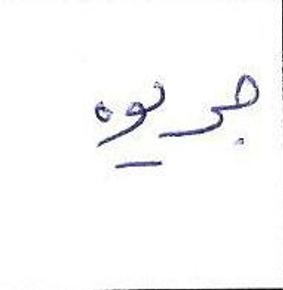 جریوه